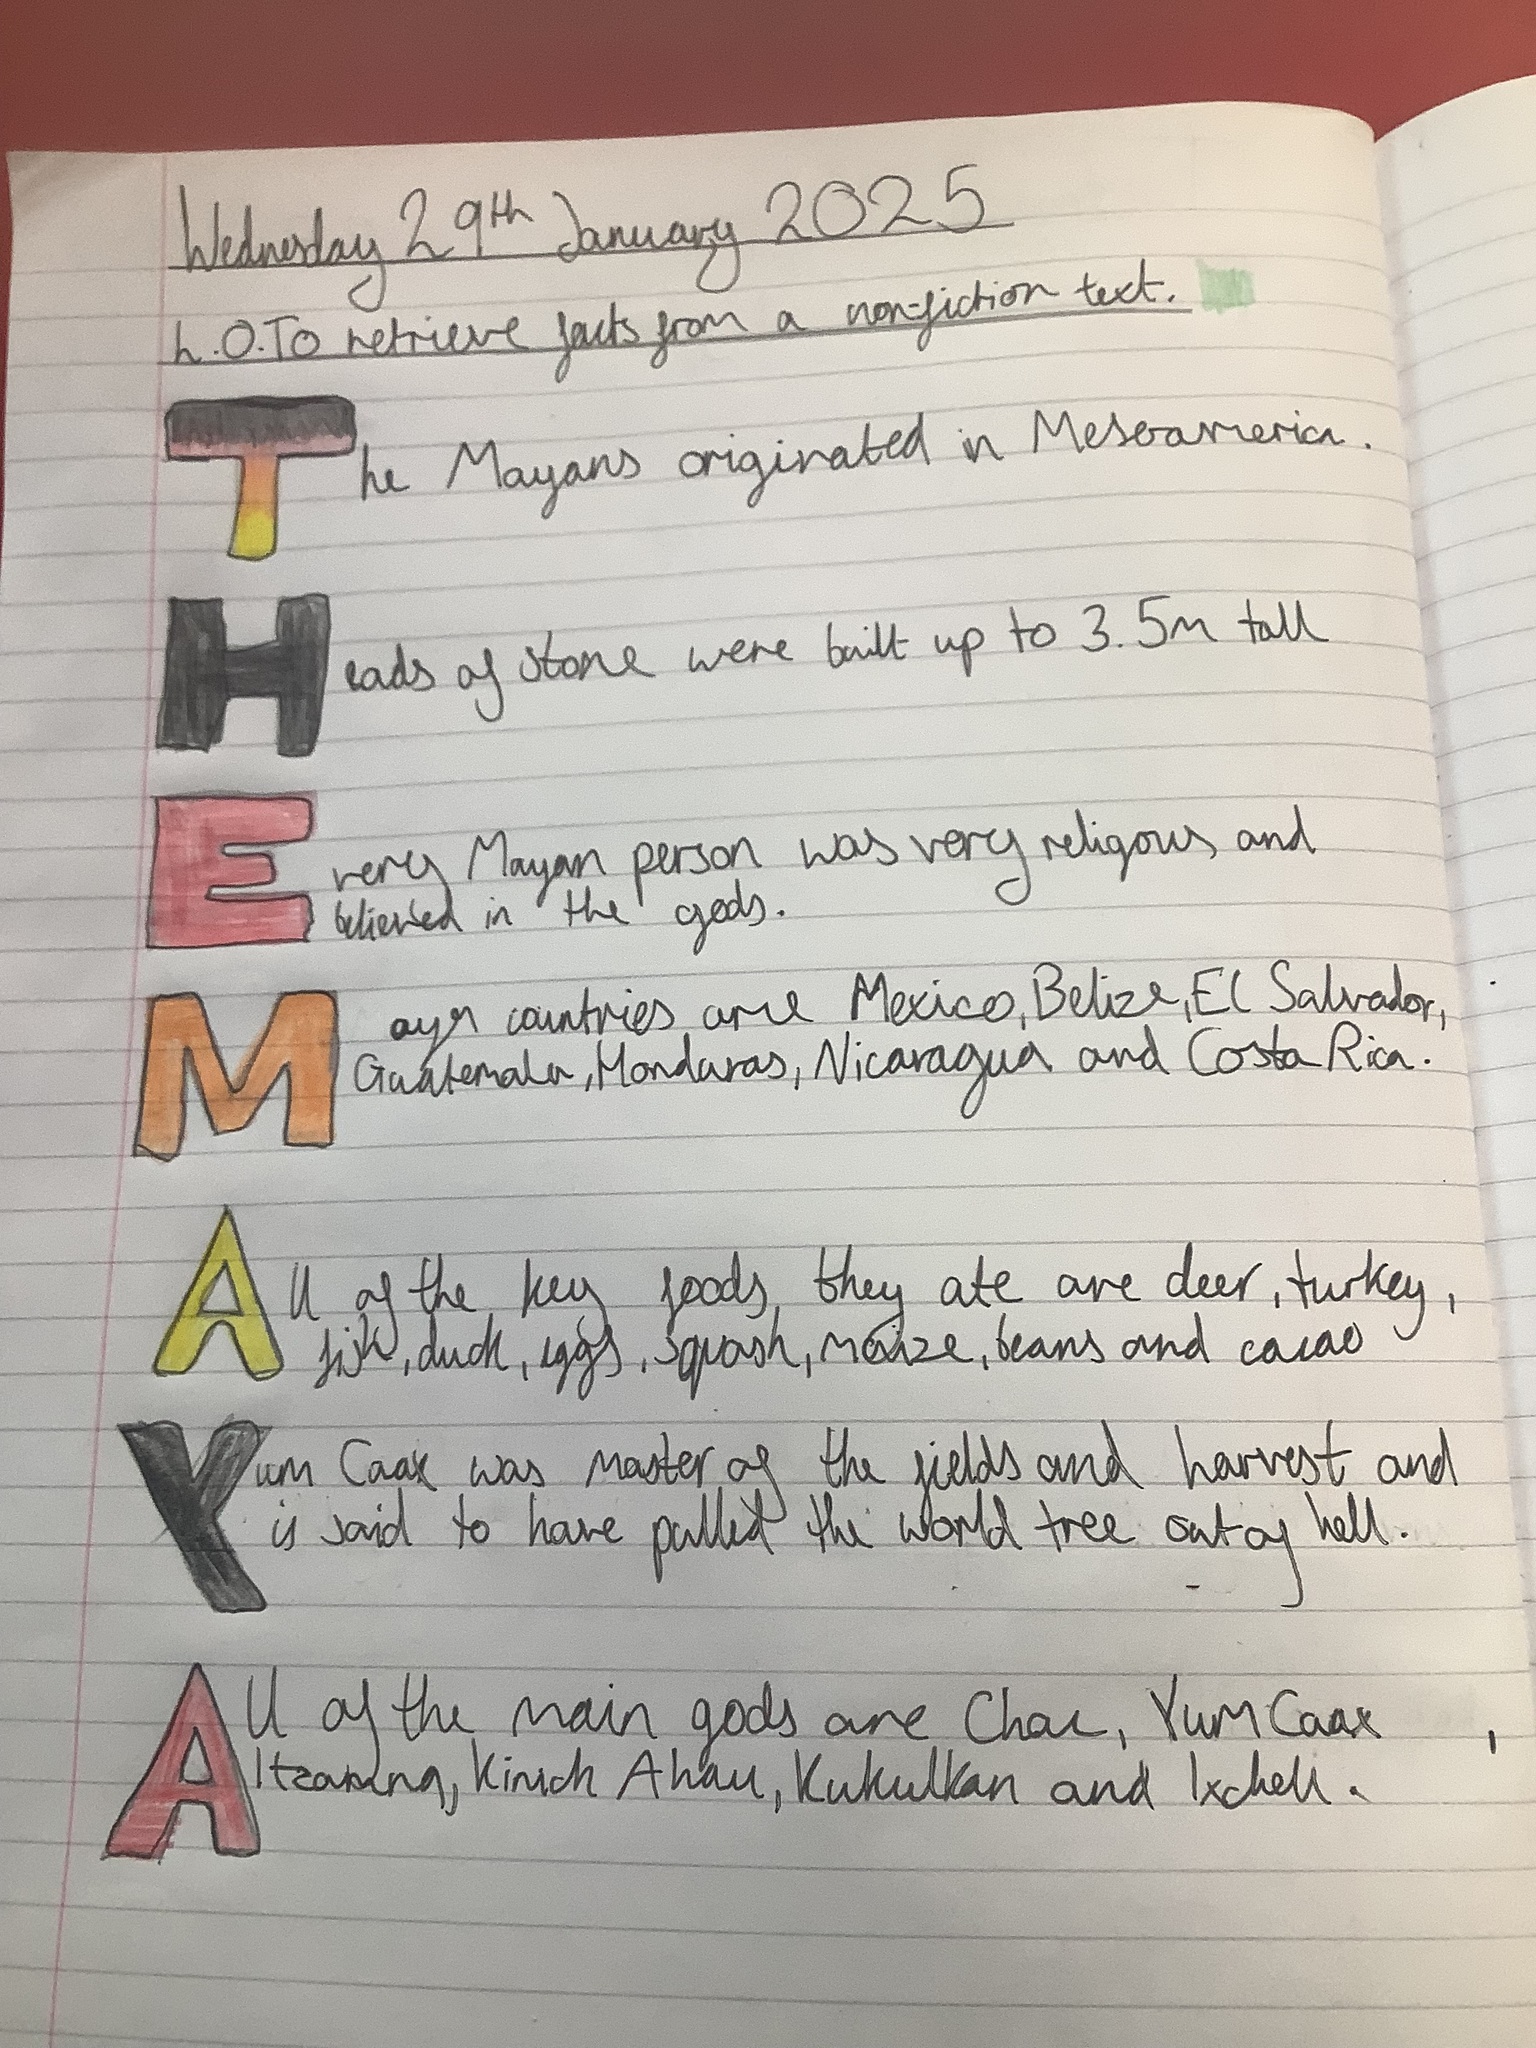 Wednesday 29th January 2025
L.O.To retrieve facts from a non-fiction text.
The Mayans originated in Mesoamerica.
Heads of stone were built up to 3.5m tall
Every Mayan person was very religous and
believed in the gods.
Maya countries are Mexico, Belize, El Salvador,
Guatemala, Honduras, Nicaragua and Costa Rica.
All of the key foods they ate are deer, turkey,
fish, duck, eggs, squash, maize, beans and cacao
Yum Caax was master of the fields and harvest and
is said to have pulled the world tree out of hell.
All of the main gods are Chac, Yum Caax,
Itzamna, Kinich Ahau, Kukulkan and Ixchell.